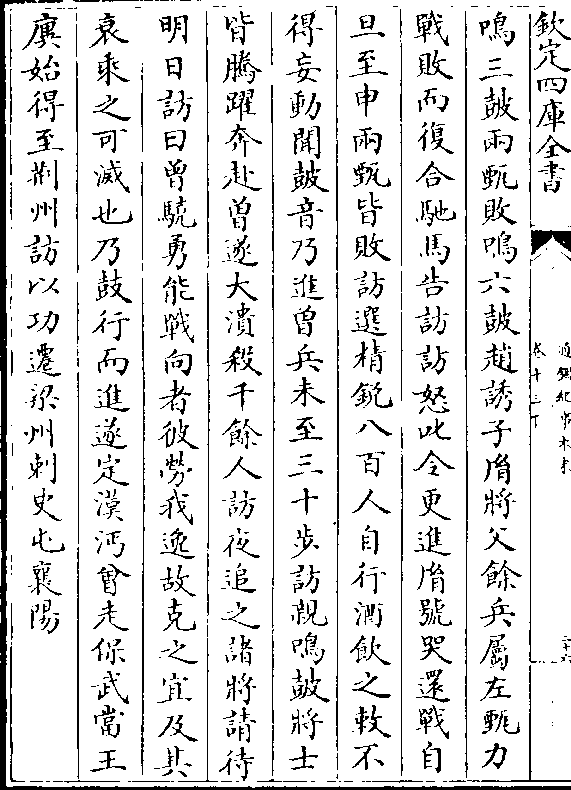 欽定四庫全書
通鑑紀事本末
卷十三下
鳴三鼓兩甄敗鳴六鼓趙誘子𦙍將父餘兵屬左甄力
戰敗而復合馳馬告訪訪怒叱令更進𦙍號哭還戰自
旦至申兩甄皆敗訪選精銳八百人自行酒飲之敕不
得妄動聞鼓音乃進曾兵未至三十歩訪親鳴鼓將士
皆騰躍奔赴曾遂大潰殺千餘人訪夜追之諸將請待
明日訪曰曾驍勇能戰向者彼勞我逸故克之宜及其
衰乘之可滅也乃鼓行而進遂定漢沔曾走保武當王
廙始得至荆州訪以功遷梁州刺史屯襄陽